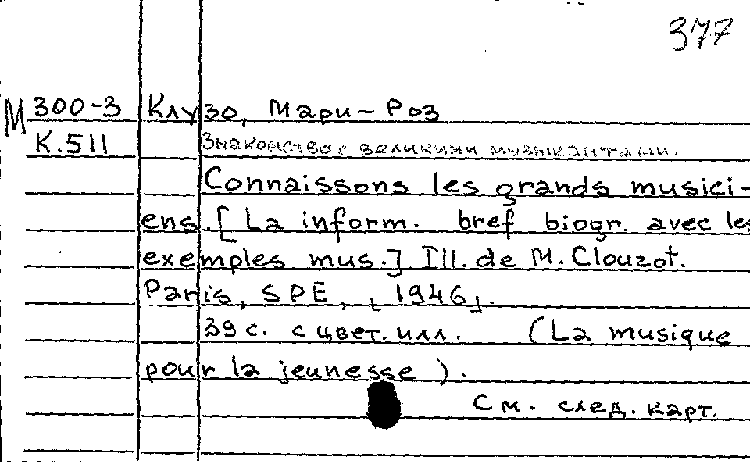 377
М 300-3 Клузо, Мари-Роз
К.511 Знакомство с великими музыкантами.
Connaissons les grands musici-
ens. [La inform. bref biogr. avec les
exemples mus.] Ill. de M. Clouzot.
Paris, SPE, [1946].
39 с. с цвет. илл. (La musique
pour la jeunesse).
См. след. карт.